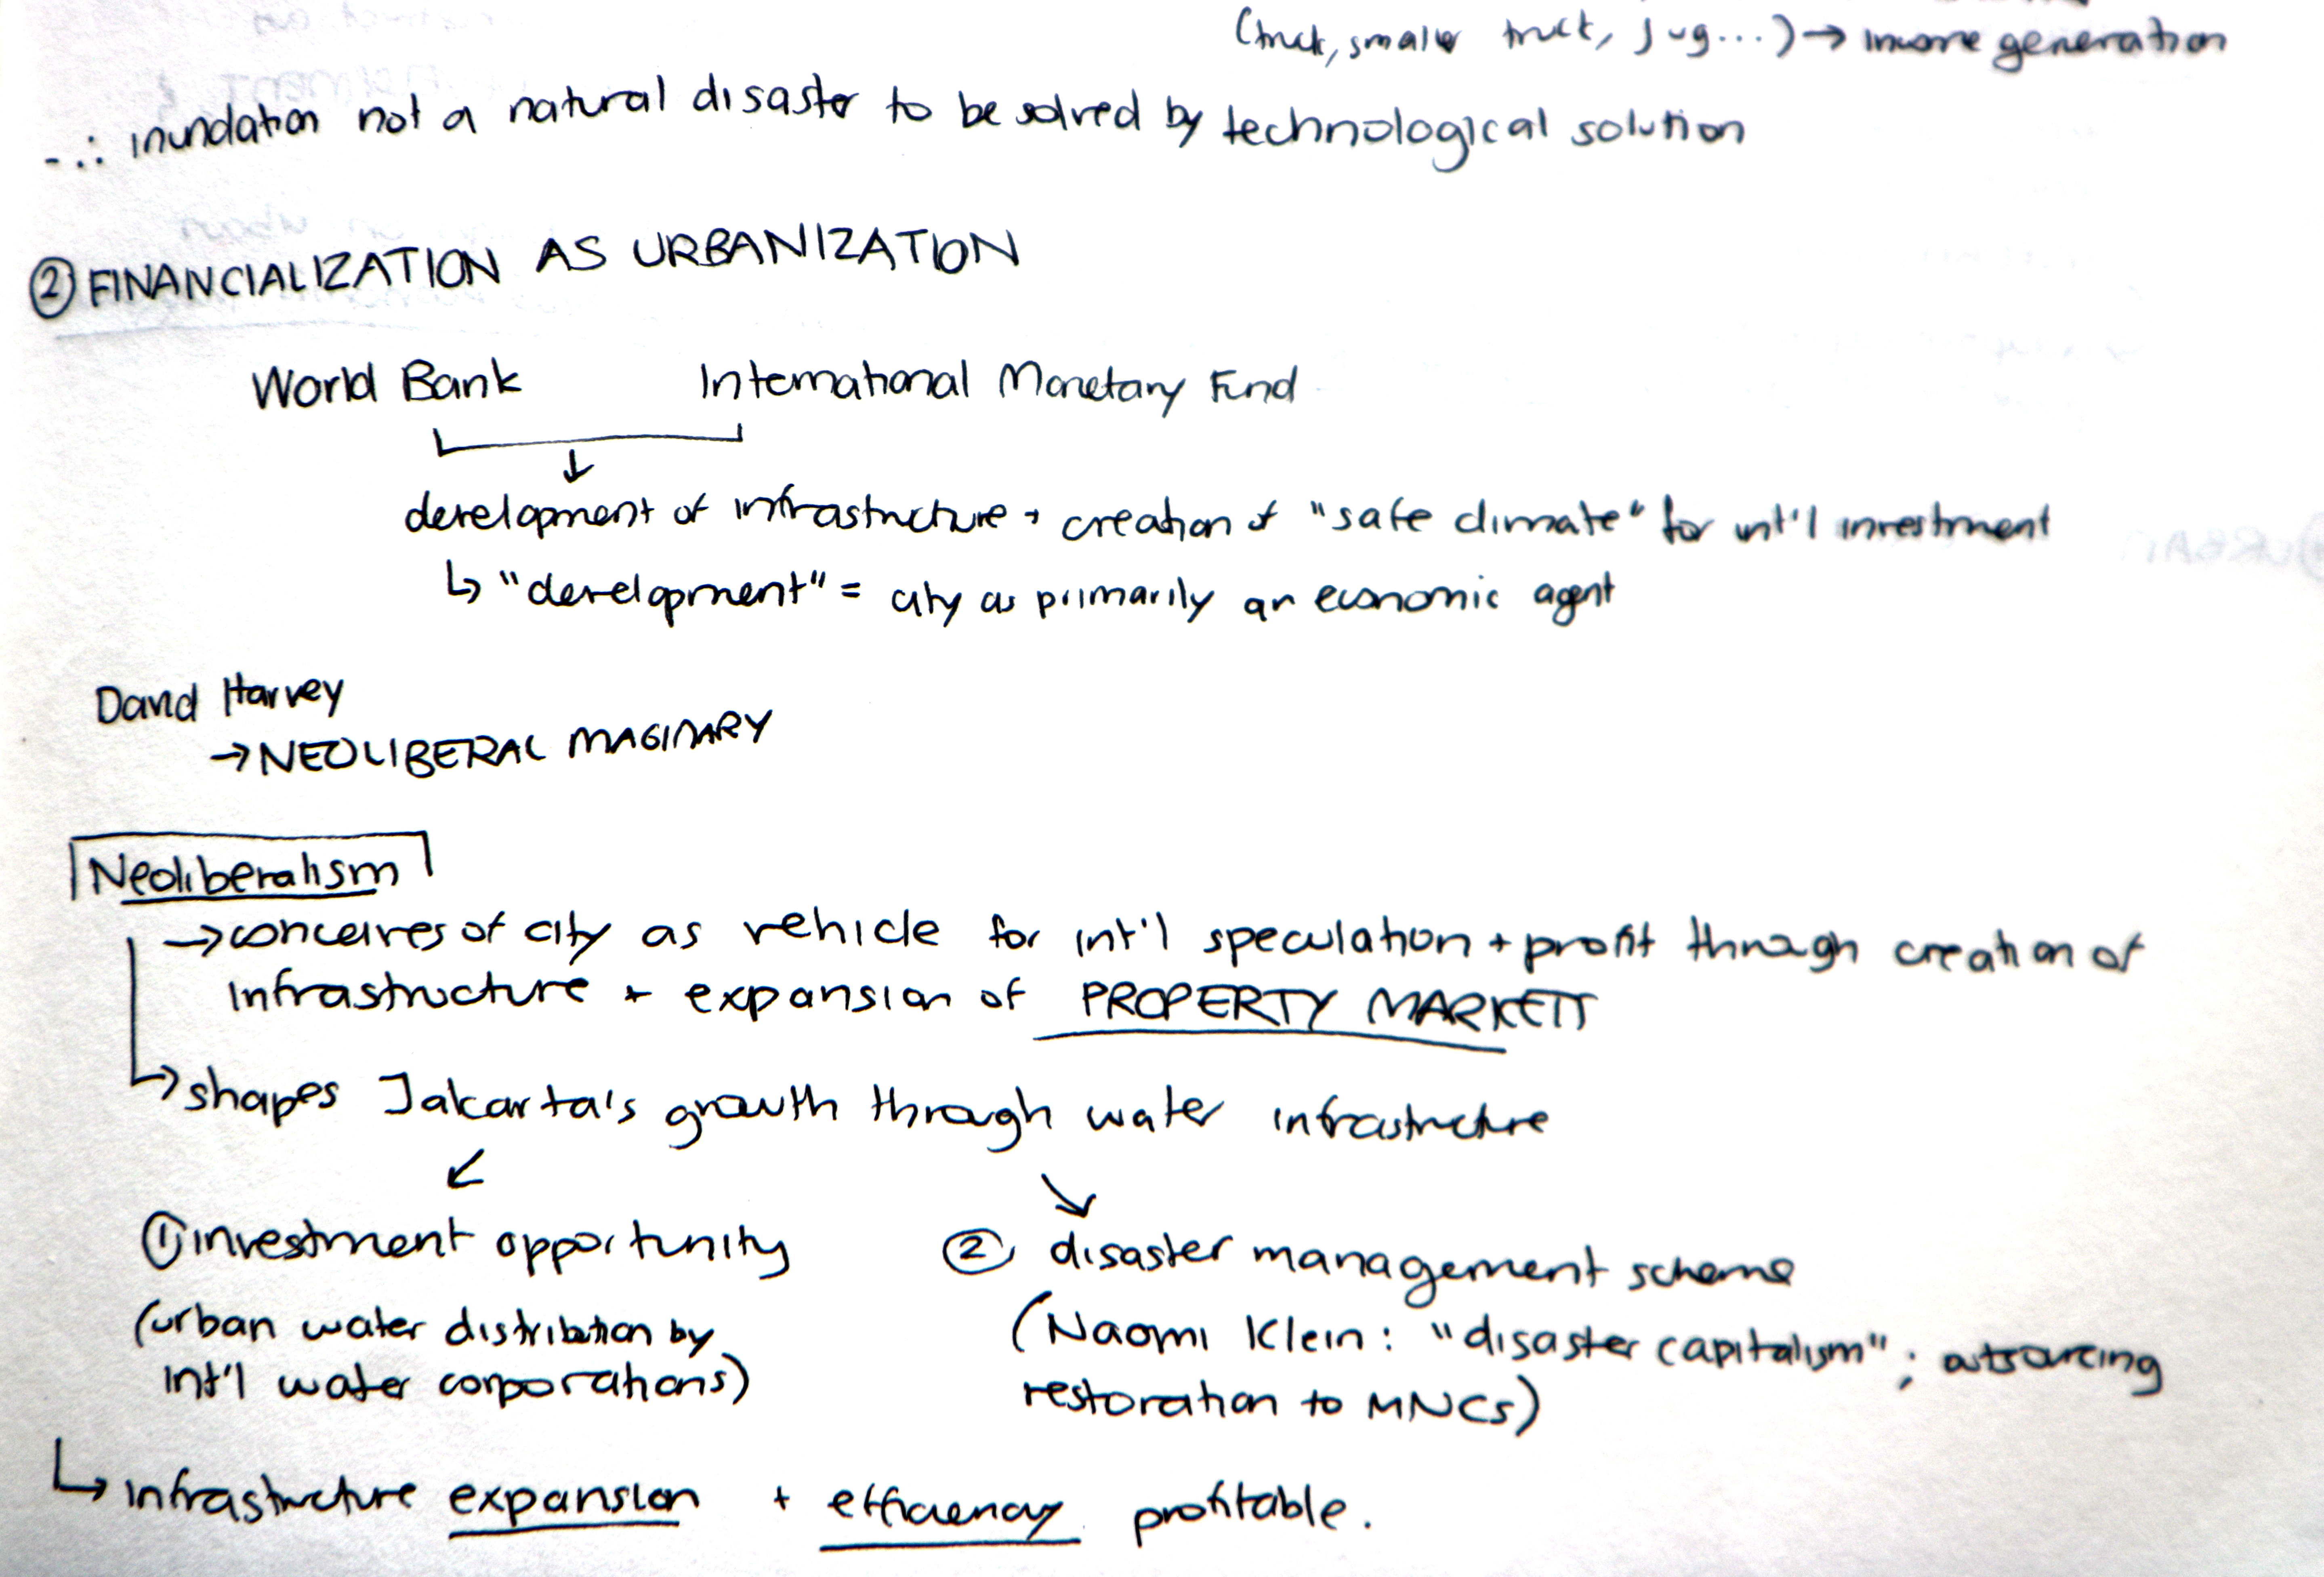 (truck, smaller truck, jug...) → income generation
- ∴ inundation not a natural disaster to be solved by technological solution
② FINANCIALIZATION AS URBANIZATION
World Bank International Monetary Fund
↓
development of infrastructure + creation of "safe climate" for int'l investment
↳ "development" = city as primarily an economic agent
David Harvey
→ NEOLIBERAL IMAGINARY
Neoliberalism
→ conceives of city as vehicle for int'l speculation + profit through creation of
infrastructure + expansion of PROPERTY MARKETS
↳ shapes Jakarta's growth through water infrastructure
↙ ↘
① investment opportunity ② disaster management scheme
(urban water distribution by (Naomi Klein: "disaster capitalism"; outsourcing
int'l water corporations) restoration to MNCs)
↳ infrastructure expansion + efficiency profitable.